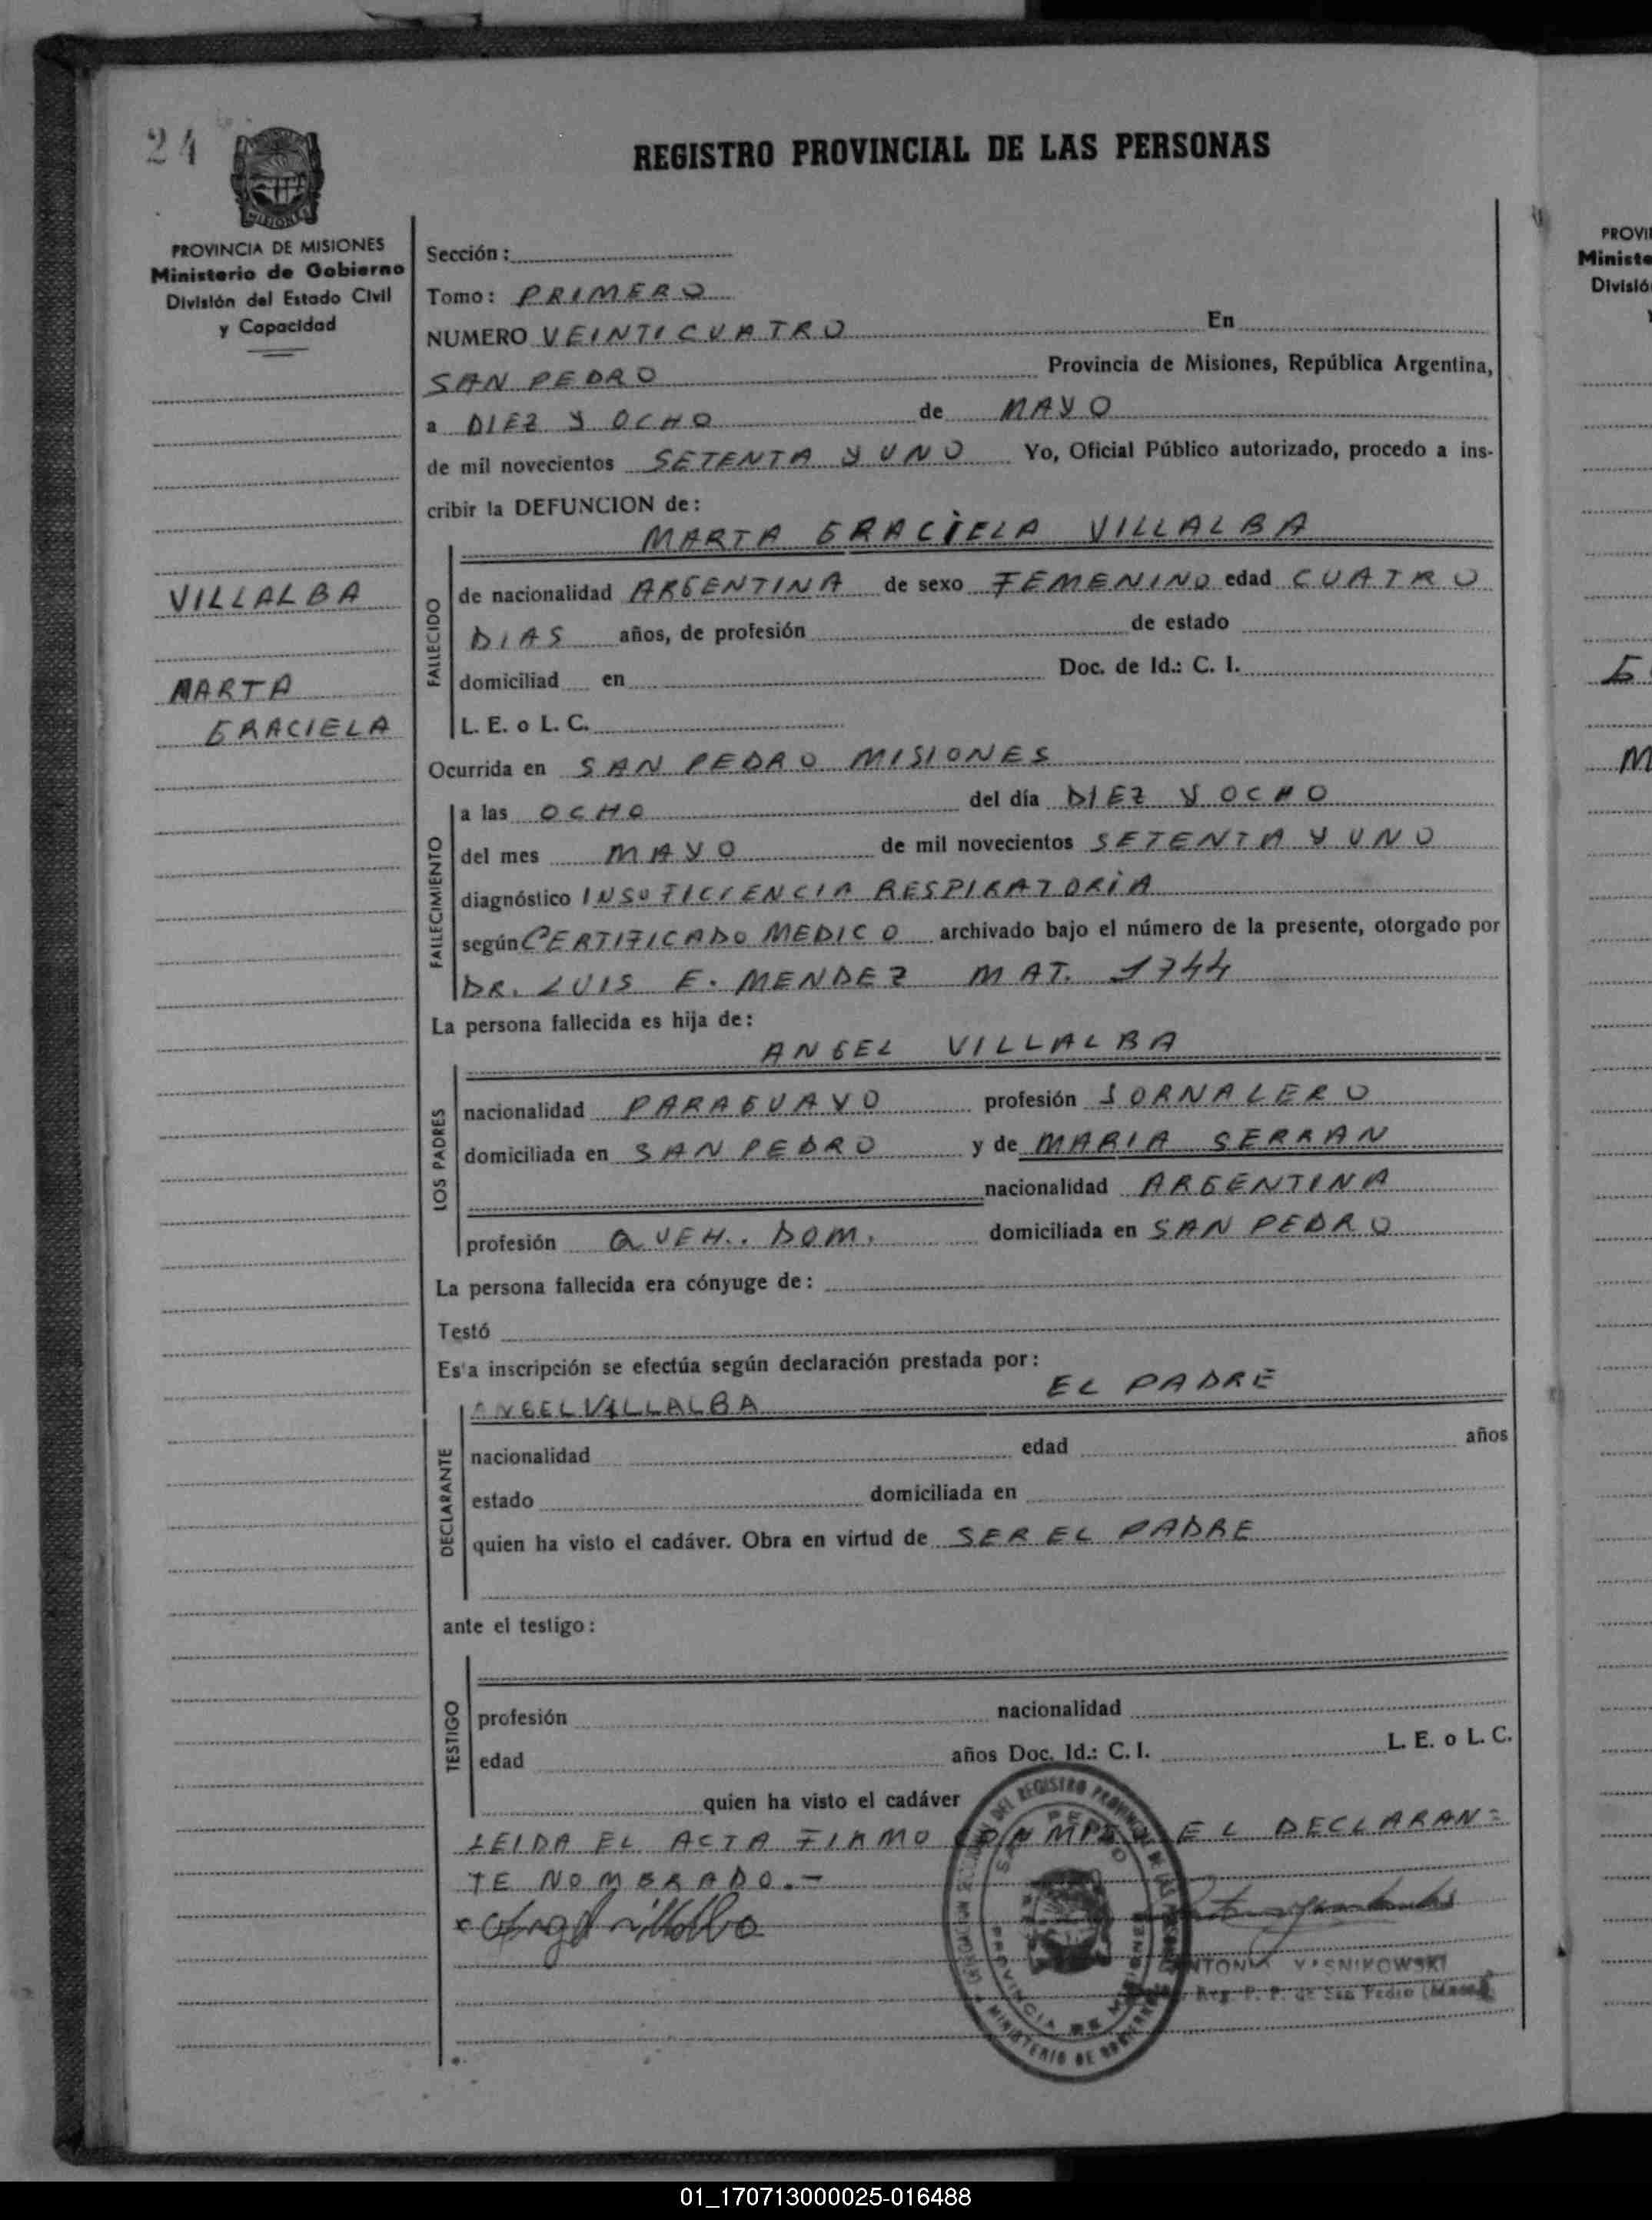 24
MISIONES
PROVINCIA DE MISIONES
Ministerio de Gobierno
División del Estado Civil
y Capacidad
VILLALBA
MARTA
GRACIELA
REGISTRO PROVINCIAL DE LAS PERSONAS
Sección:
Tomo: PRIMERO
NUMERO VEINTICUATRO En
SAN PEDRO Provincia de Misiones, República Argentina,
a DIEZ Y OCHO de MAYO
de mil novecientos SETENTA Y UNO Yo, Oficial Público autorizado, procedo a ins-
cribir la DEFUNCION de:
MARTA GRACIELA VILLALBA
FALLECIDO
de nacionalidad ARGENTINA de sexo FEMENINO edad CUATRO
DIAS años, de profesión de estado
domiciliad en Doc. de Id.: C. I.
L. E. o L. C.
Ocurrida en SAN PEDRO MISIONES
FALLECIMIENTO
a las OCHO del día DIEZ Y OCHO
del mes MAYO de mil novecientos SETENTA Y UNO
diagnóstico INSUFICIENCIA RESPIRATORIA
según CERTIFICADO MEDICO archivado bajo el número de la presente, otorgado por
DR. LUIS E. MENDEZ MAT. 1744
La persona fallecida es hija de:
ANGEL VILLALBA
LOS PADRES
nacionalidad PARAGUAYO profesión JORNALERO
domiciliada en SAN PEDRO y de MARIA SERRAN
nacionalidad ARGENTINA
profesión QUEH. DOM. domiciliada en SAN PEDRO
La persona fallecida era cónyuge de:
Testó
Es'a inscripción se efectúa según declaración prestada por:
EL PADRE
ANGEL VILLALBA
DECLARANTE
nacionalidad edad años
estado domiciliada en
quien ha visto el cadáver. Obra en virtud de SER EL PADRE
ante el testigo:
TESTIGO
profesión nacionalidad
edad años Doc. Id.: C. I. L. E. o L. C.
quien ha visto el cadáver
LEIDA EL ACTA FIRMO EL DECLARAN=
TE NOMBRADO.-
Angel Villalba
DEL REGISTRO PROVINCIAL DE LAS
SAN PEDRO
PROVINCIA DE MISIONES
MINISTERIO DE GOBIERNO
Reg. P. P. de San Pedro
PROVI
Ministe
Divisió
M
01_170713000025-016488